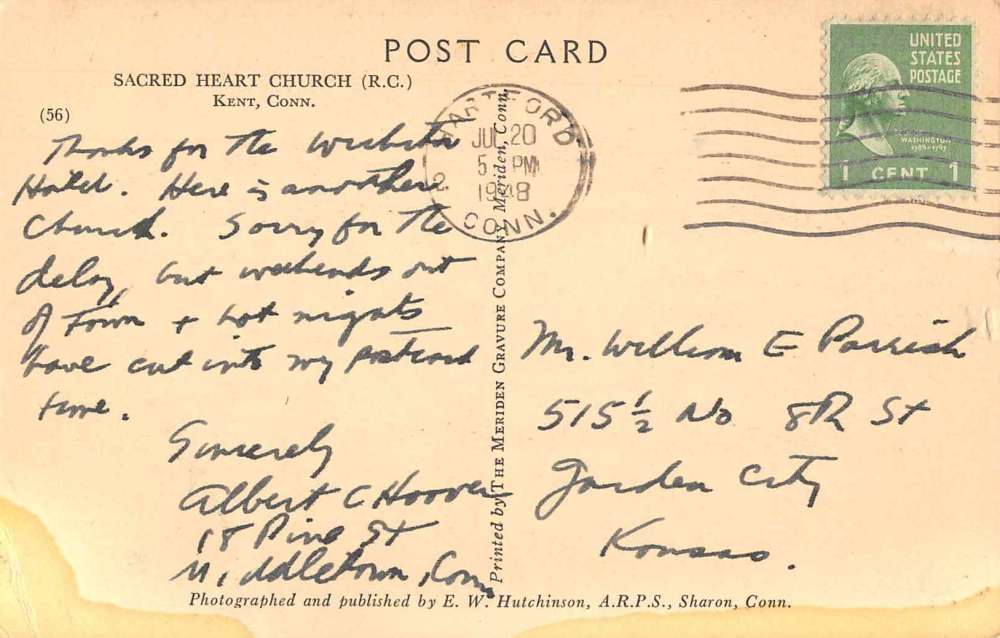 POST CARD
SACRED HEART CHURCH (R.C.)
KENT, CONN.
(56)
Thanks for the Wichita
Hotel. Here is another
Church. Sorry for the
delay, but weekends out
of town + hot nights
have cut into my postcard
time.
Sincerely
Albert C Hoover
18 Pine St
Middletown, Conn
HARTFORD
JUL 20
5 PM
1948
2
CONN.
UNITED
STATES
POSTAGE
WASHINGTON
1789-1797
1 CENT 1
Printed by THE MERIDEN GRAVURE COMPANY, Meriden, Conn.
Mr. William E Parrish
515 1/2 No 8th St
Garden City
Kansas.
Photographed and published by E. W. Hutchinson, A.R.P.S., Sharon, Conn.